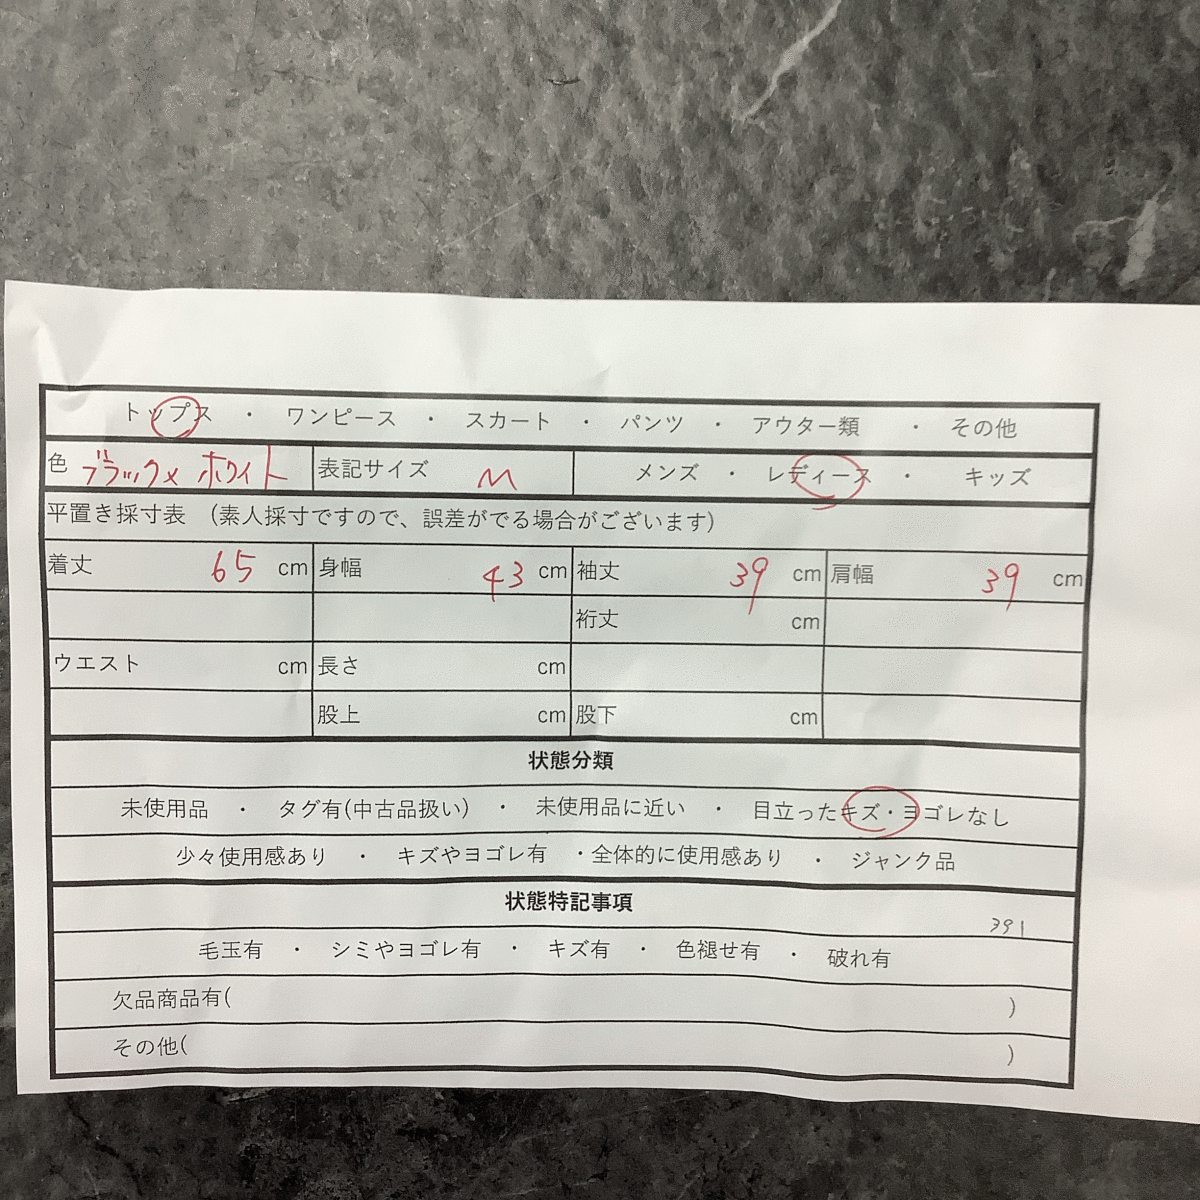 トップス ・ ワンピース ・ スカート ・ パンツ ・ アウター類 ・ その他
色 ブラック×ホワイト 表記サイズ M メンズ ・ レディース ・ キッズ
平置き採寸表 (素人採寸ですので、誤差がでる場合がございます)
着丈 65 cm 身幅 43 cm 袖丈 39 cm 肩幅 39 cm
裄丈 cm
ウエスト cm 長さ cm
股上 cm 股下 cm
状態分類
未使用品 ・ タグ有(中古品扱い) ・ 未使用品に近い ・ 目立ったキズ・ヨゴレなし
少々使用感あり ・ キズやヨゴレ有 ・全体的に使用感あり ・ ジャンク品
状態特記事項
391
毛玉有 ・ シミやヨゴレ有 ・ キズ有 ・ 色褪せ有 ・ 破れ有
欠品商品有( )
その他( )